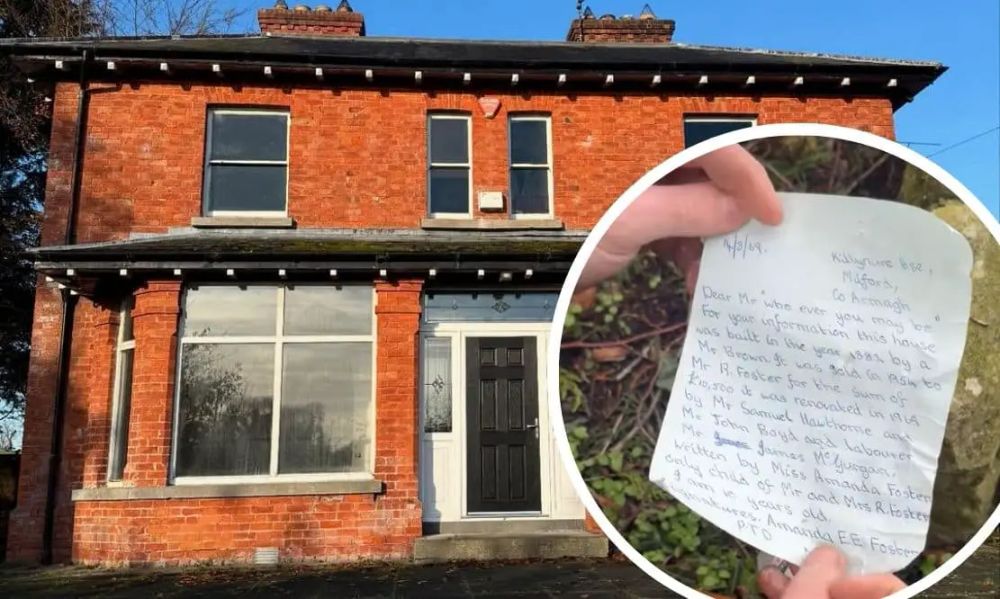 14/8/69.
Killynure Hse,
Milford,
Co Armagh
Dear Mr "who ever you may be"
For your information this house
was built in the year 1883 by a
Mr Brown. It was sold in 1954 to
Mr R. Foster for the sum of
£10,500 It was renovated in 1969
by Mr Samuel Hawthorne and
Mr John Boyd and Labourer
Mr James Mc Gurgan.
Written by Miss Amanda Foster
only child of Mr and Mrs R. Foster
I am 10 years old.
Signatures. Amanda E.E Foster
P.T.O